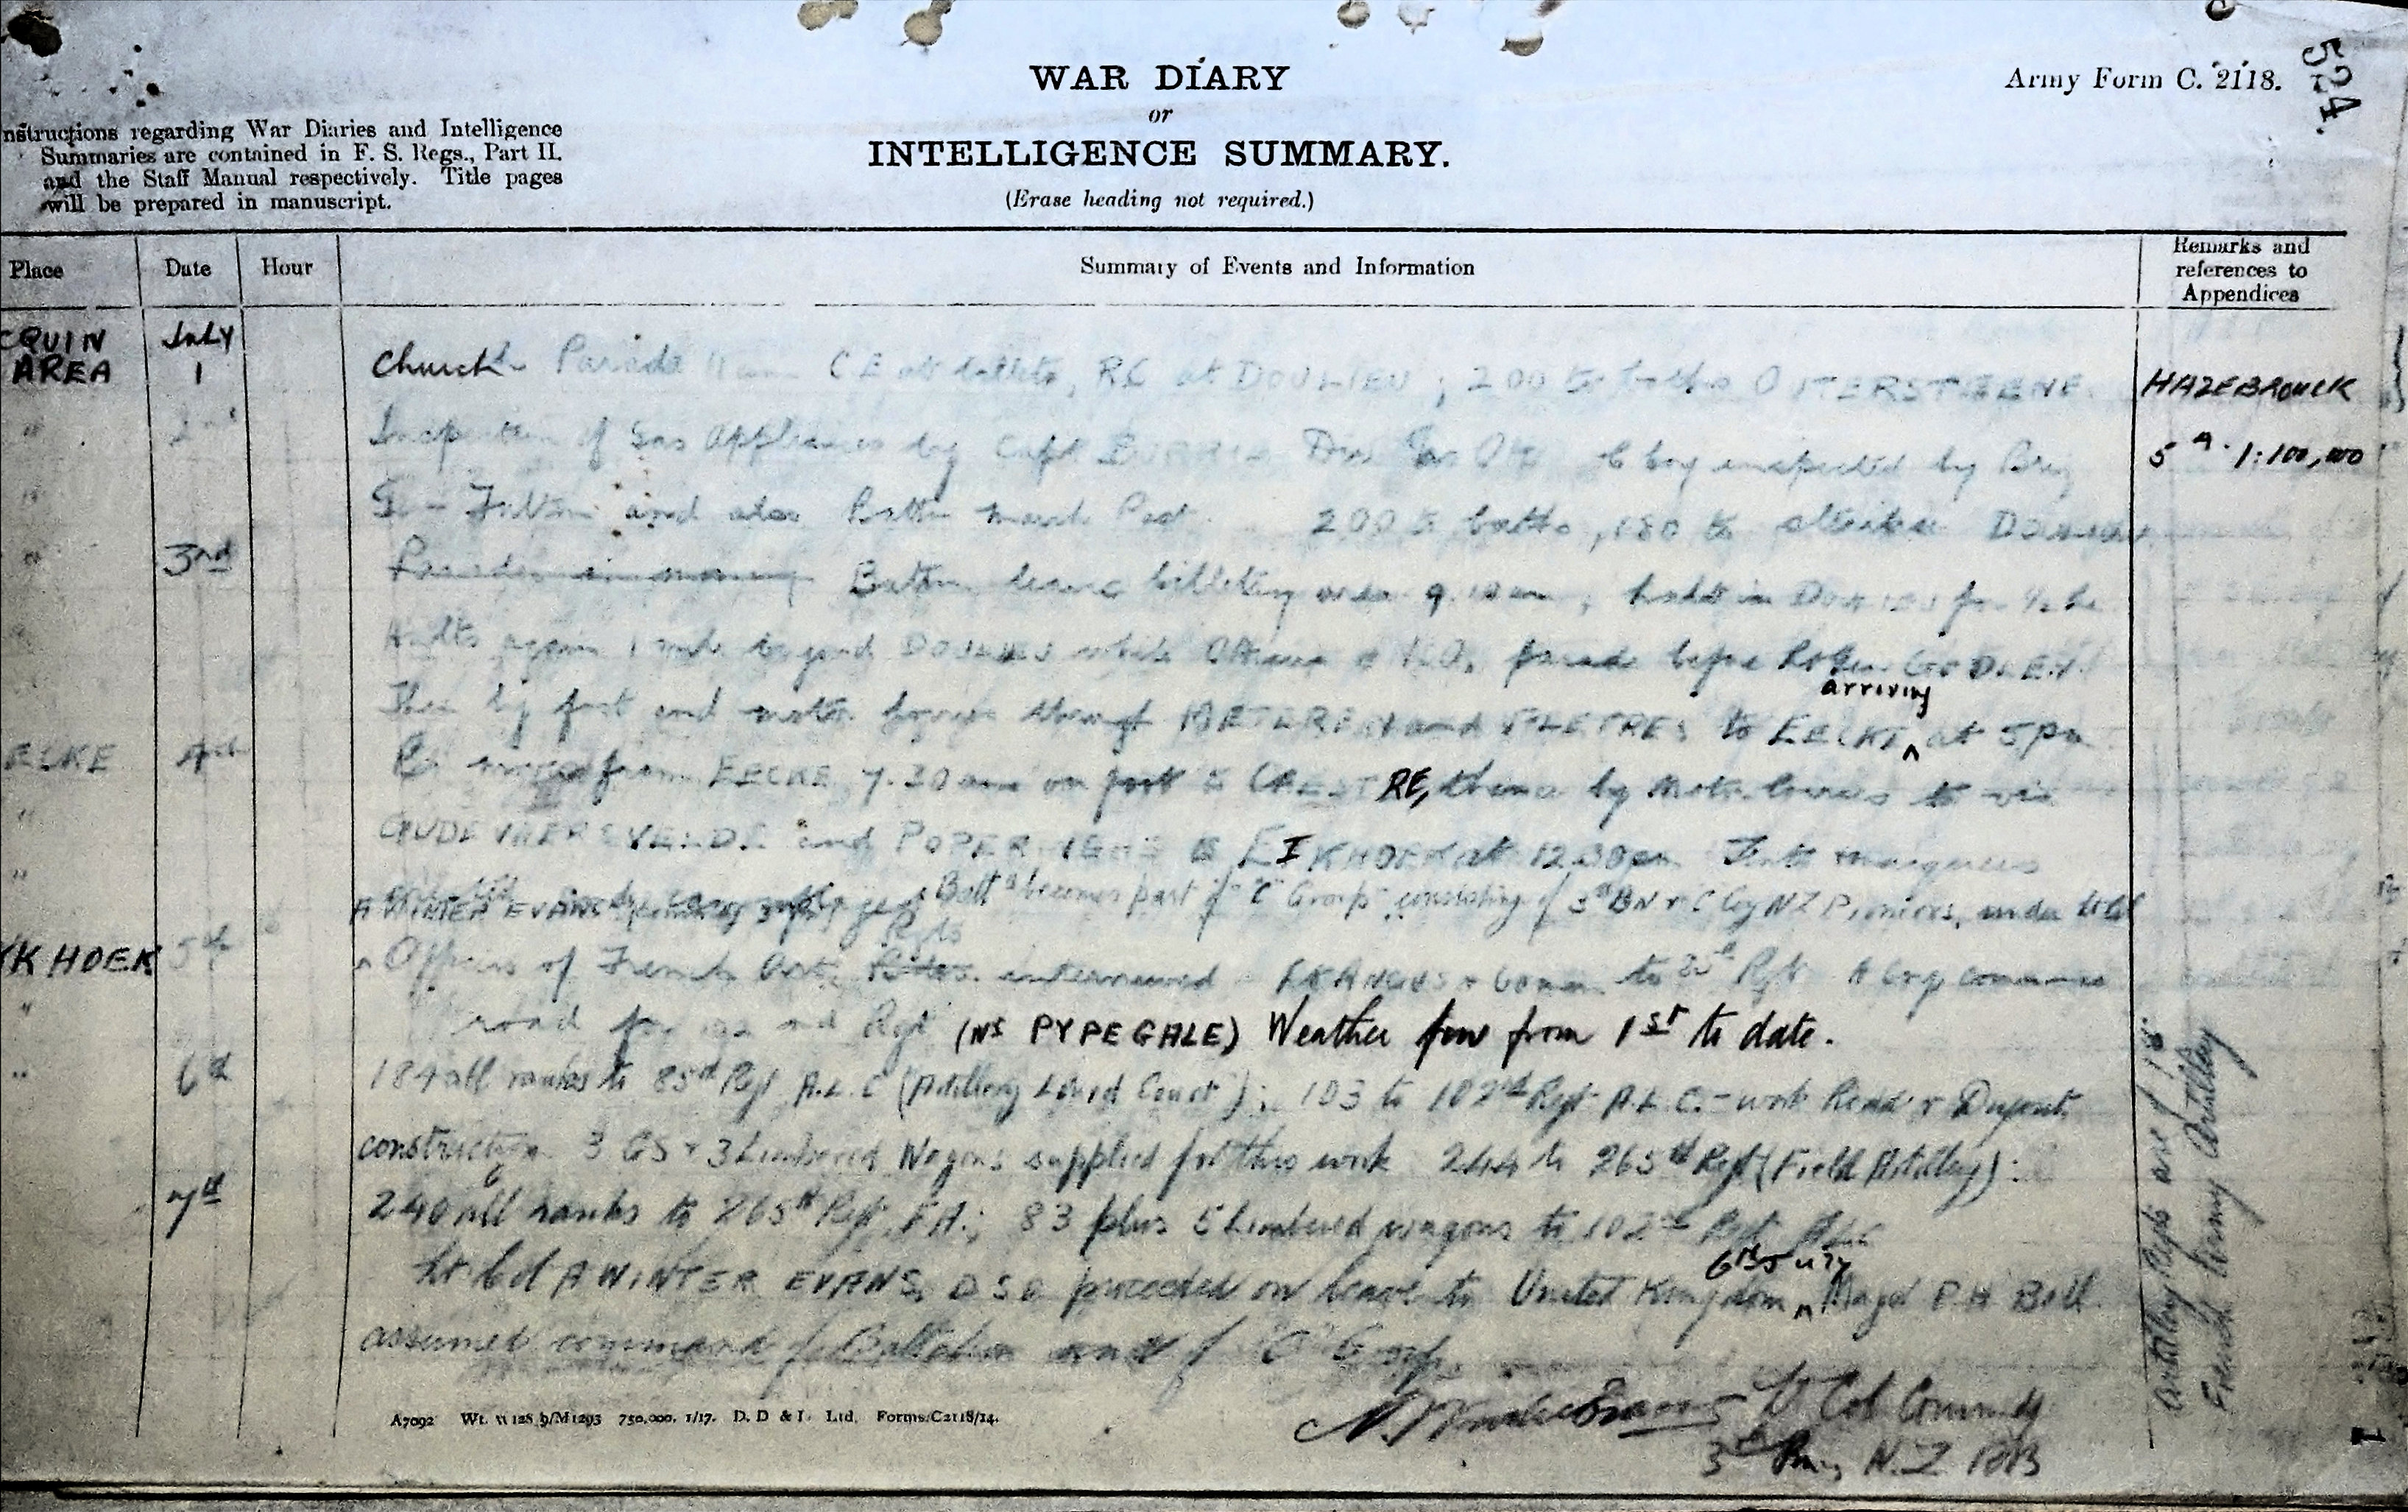 WAR DIARY
or
INTELLIGENCE SUMMARY.
(Erase heading not required.)
Army Form C. 2118.
524.
nstructions regarding War Diaries and Intelligence
Summaries are contained in F. S. Regs., Part II.
and the Staff Manual respectively. Title pages
will be prepared in manuscript.
Place Date Hour Summary of Events and Information Remarks and references to Appendices
CQUIN July
AREA 1 Church Parade 11 am CE at billets, RC at DOULIEU; 200 to baths OUTERSTEENE. HAZEBROUCK
" 2nd Inspection of Gas Appliances by Capt Div Gas Off inspected by Brig 5A 1:100,000
" Gen Fulton and also Battn march Past 200 to baths, 180 to DOULIEU
" 3rd Parades in morning Battn leave billeting area 9. am; halts in DOULIEU for ½ hr
Halts again 1 mile beyond DOULIEU while Officers & NCOs parade before GODLEY.
Then by foot and motor lorries through METEREN and FLETRES to EECKE arriving at 5 pm
EEKE 4th move from EECKE 7.30 am on foot to CAESTRE, thence by Motor lorries to via
" GODEWAERSVELDE and POPERINGHE to EIKHOEK at 12.30 pm
" Batt becomes part of "C" Group consisting of 3rd BN & C Coy NZ Pioneers, under Lt Col
A WINTER EVANS
YKHOEK 5th Officers of French Art Regts interviewed to Regt A Coy commence
" road for Regt (Ns PYPEGALE) Weather fine from 1st to date.
" 6th 184 all ranks to 85th Regt A.L.C (Artillery Lourd Court); 103 to 102nd Regt A.L.C. - work Road &
construction 3 GS & 3 Limbered Wagons supplied for this work 244 to 265th Regt (Field Artillery):
7th 240 all ranks to 265th Regt F.A.; 83 plus 5 Limbered wagons to 102nd Regt ALC
Lt Col A WINTER EVANS, DSO proceeded on leave to United Kingdom 6th July Major P H Bell
assumed command of Battalion and of "C" Group.
Artillery Regts are 1st
French Army Artillery
A Winter Evans Lt Col Commdg
3rd N.Z RB
A7092 Wt. W128.9/M1293 750,000. 1/17. D. D & L. Ltd. Forms/C2118/14.
1